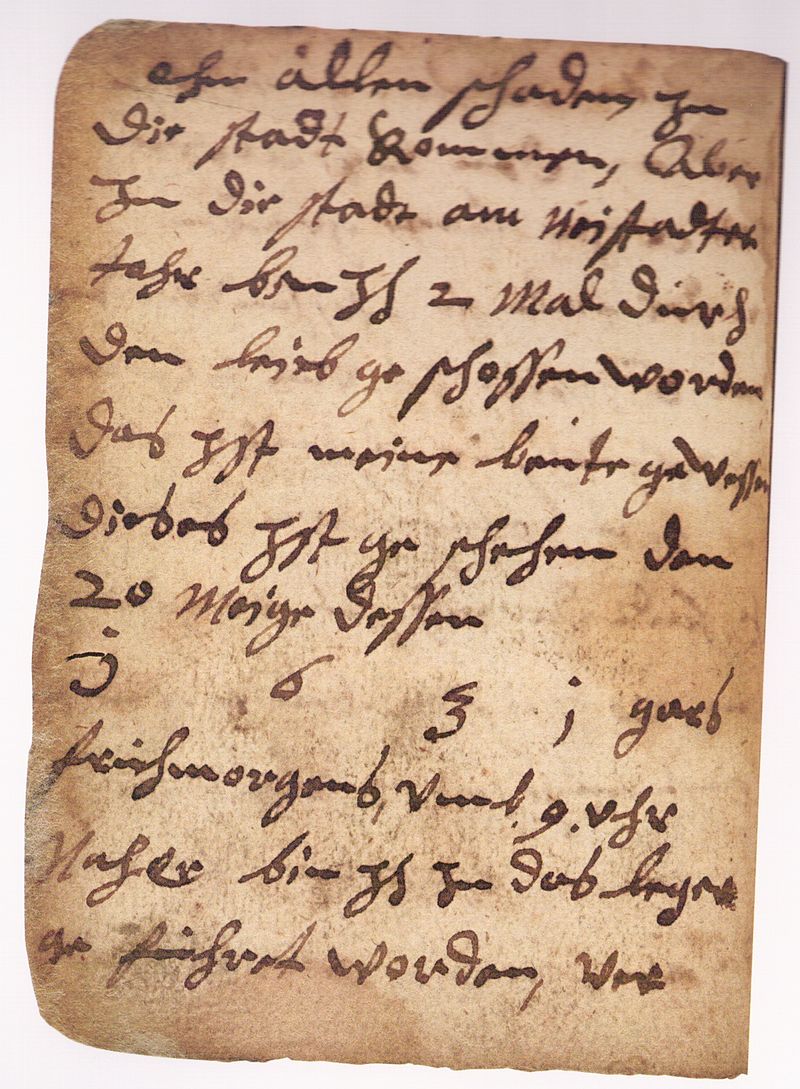 ohn allen schaden, in
die stadt kommen, Aber
in die stadt am Neistadter
tohr bin ich 2 Mal durch
den leieb ge schossen worden
das ist meine beute ge wessen
dieses ist ge schehen den
20 Meige dessen
j 6 3 j gars
frichmorgens, vmb. 9. vhr
Naher bin ich in das leger
ge fuchret worden, ver